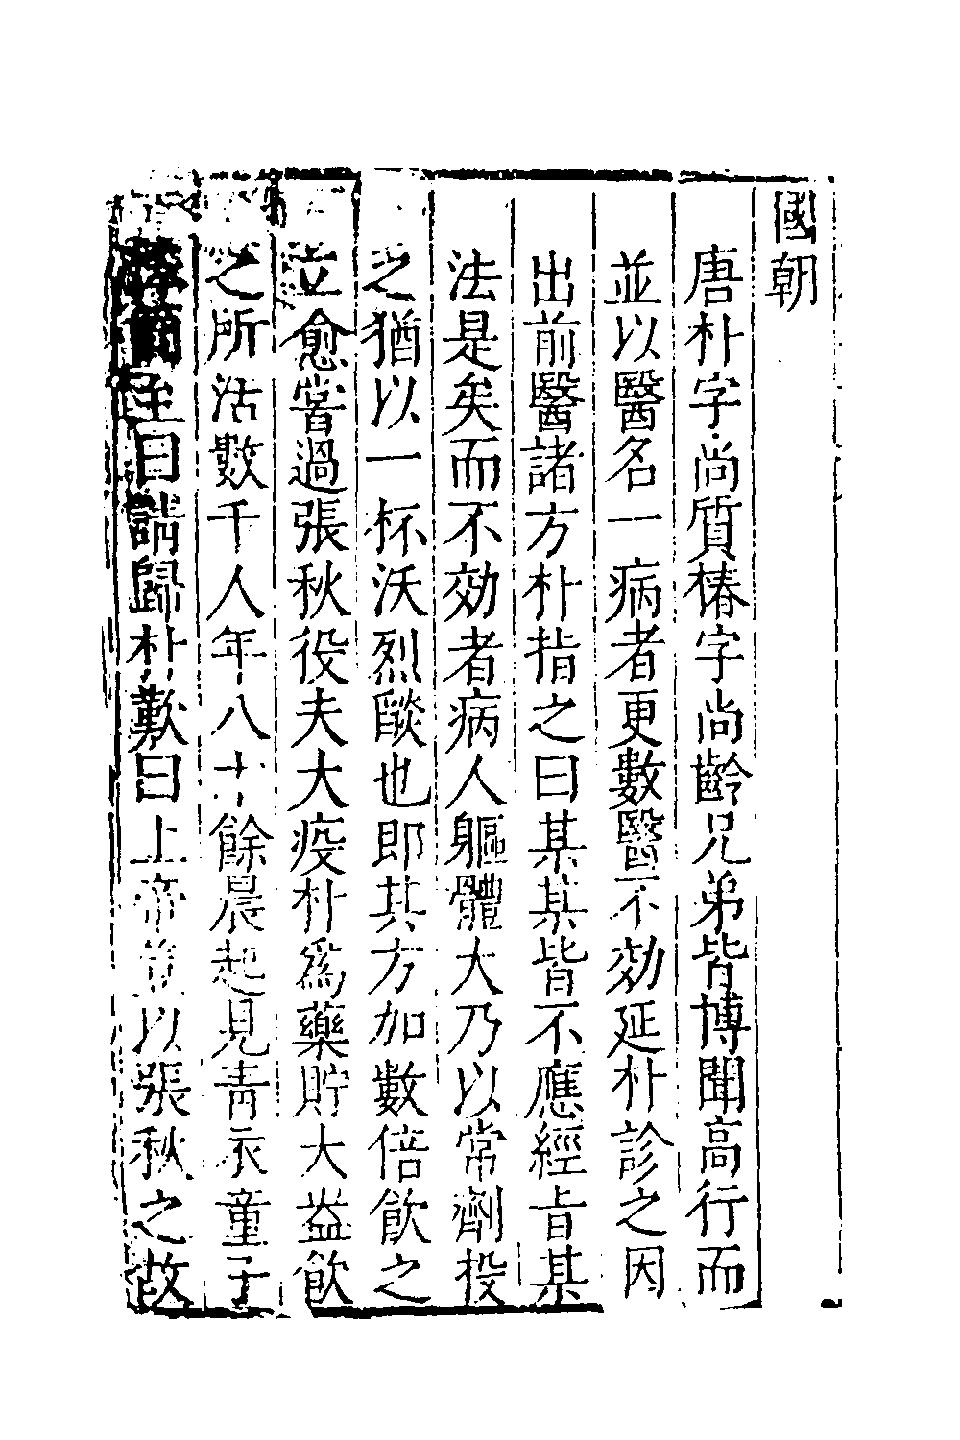 國朝
唐朴字尚質椿字尚齡兄弟皆博聞高行而
並以醫名一病者更數醫不効延朴診之因
出前醫諸方朴指之曰某某皆不應經旨某
法是矣而不効者病人軀體大乃以常劑投
之猶以一杯沃烈燄也即其方加數倍飲之
立愈嘗過張秋役夫大疫朴爲藥貯大盆飲
之所活數千人年八十餘晨起見青衣童子
至曰請歸朴歎曰上帝以張秋之故